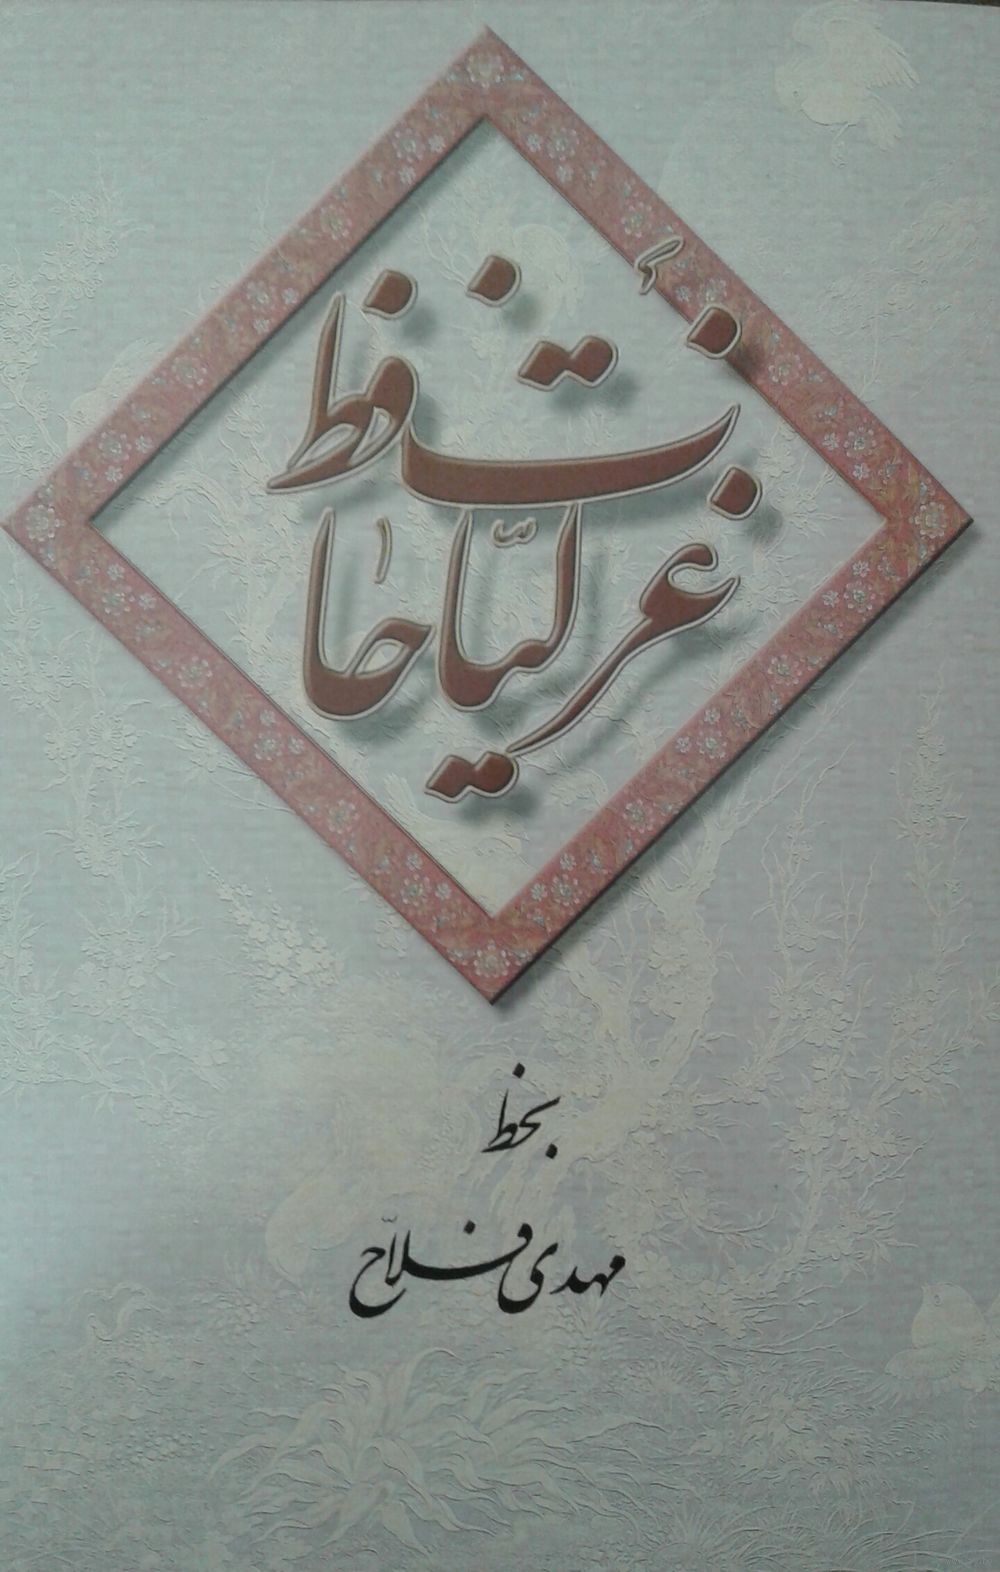 غزلیات حافظ
بخط
مهدی فلاّح